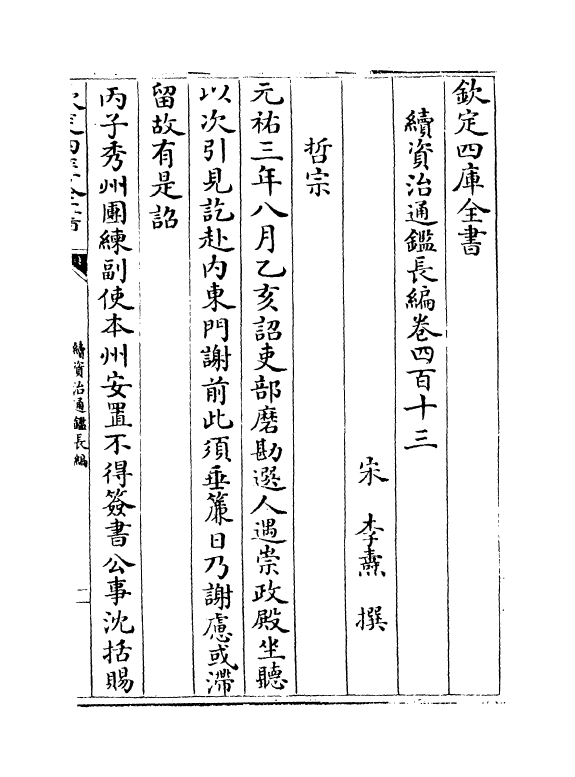 欽定四庫全書
續資治通鑑長編卷四百十三
宋 李燾 撰
哲宗
元祐三年八月乙亥詔吏部磨勘選人遇崇政殿坐聽
以次引見訖赴内東門謝前此須垂簾日乃謝慮或滯
留故有是詔
丙子秀州團練副使本州安置不得簽書公事沈括賜
欽定四庫全書
續資治通鑑長編
一